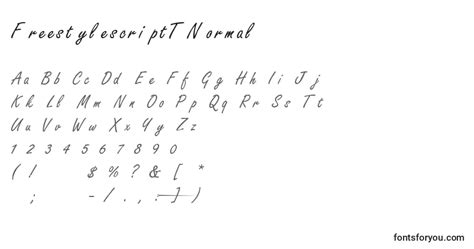 FreestylescriptT Normal
Aa Bb Cc Dd Ee Ff Gg Hh Ii Jj
Kk Ll Mm Nn Oo Pp Qq Rr Ss Tt
Uu Vv Ww Xx Yy Zz
1 2 3 4 5 6 7 8 9 0
( ! $ % ? & [ *
; - / . , : ] )
fontsforyou.com